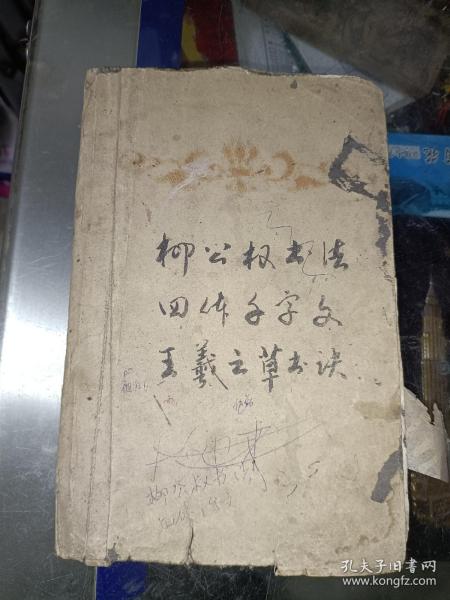 柳公权书法
四体千字文
王羲之草书诀
柳公权书法
孔夫子旧书网
www.kongfz.com